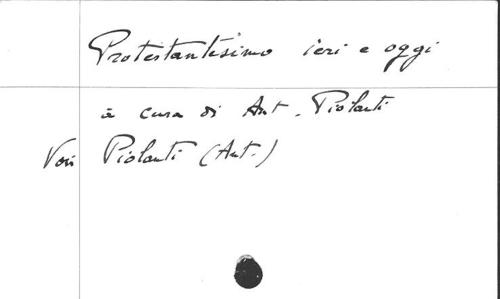 Protestantesimo ieri e oggi
a cura di Ant. Piolanti
Voir Piolanti (Ant.)